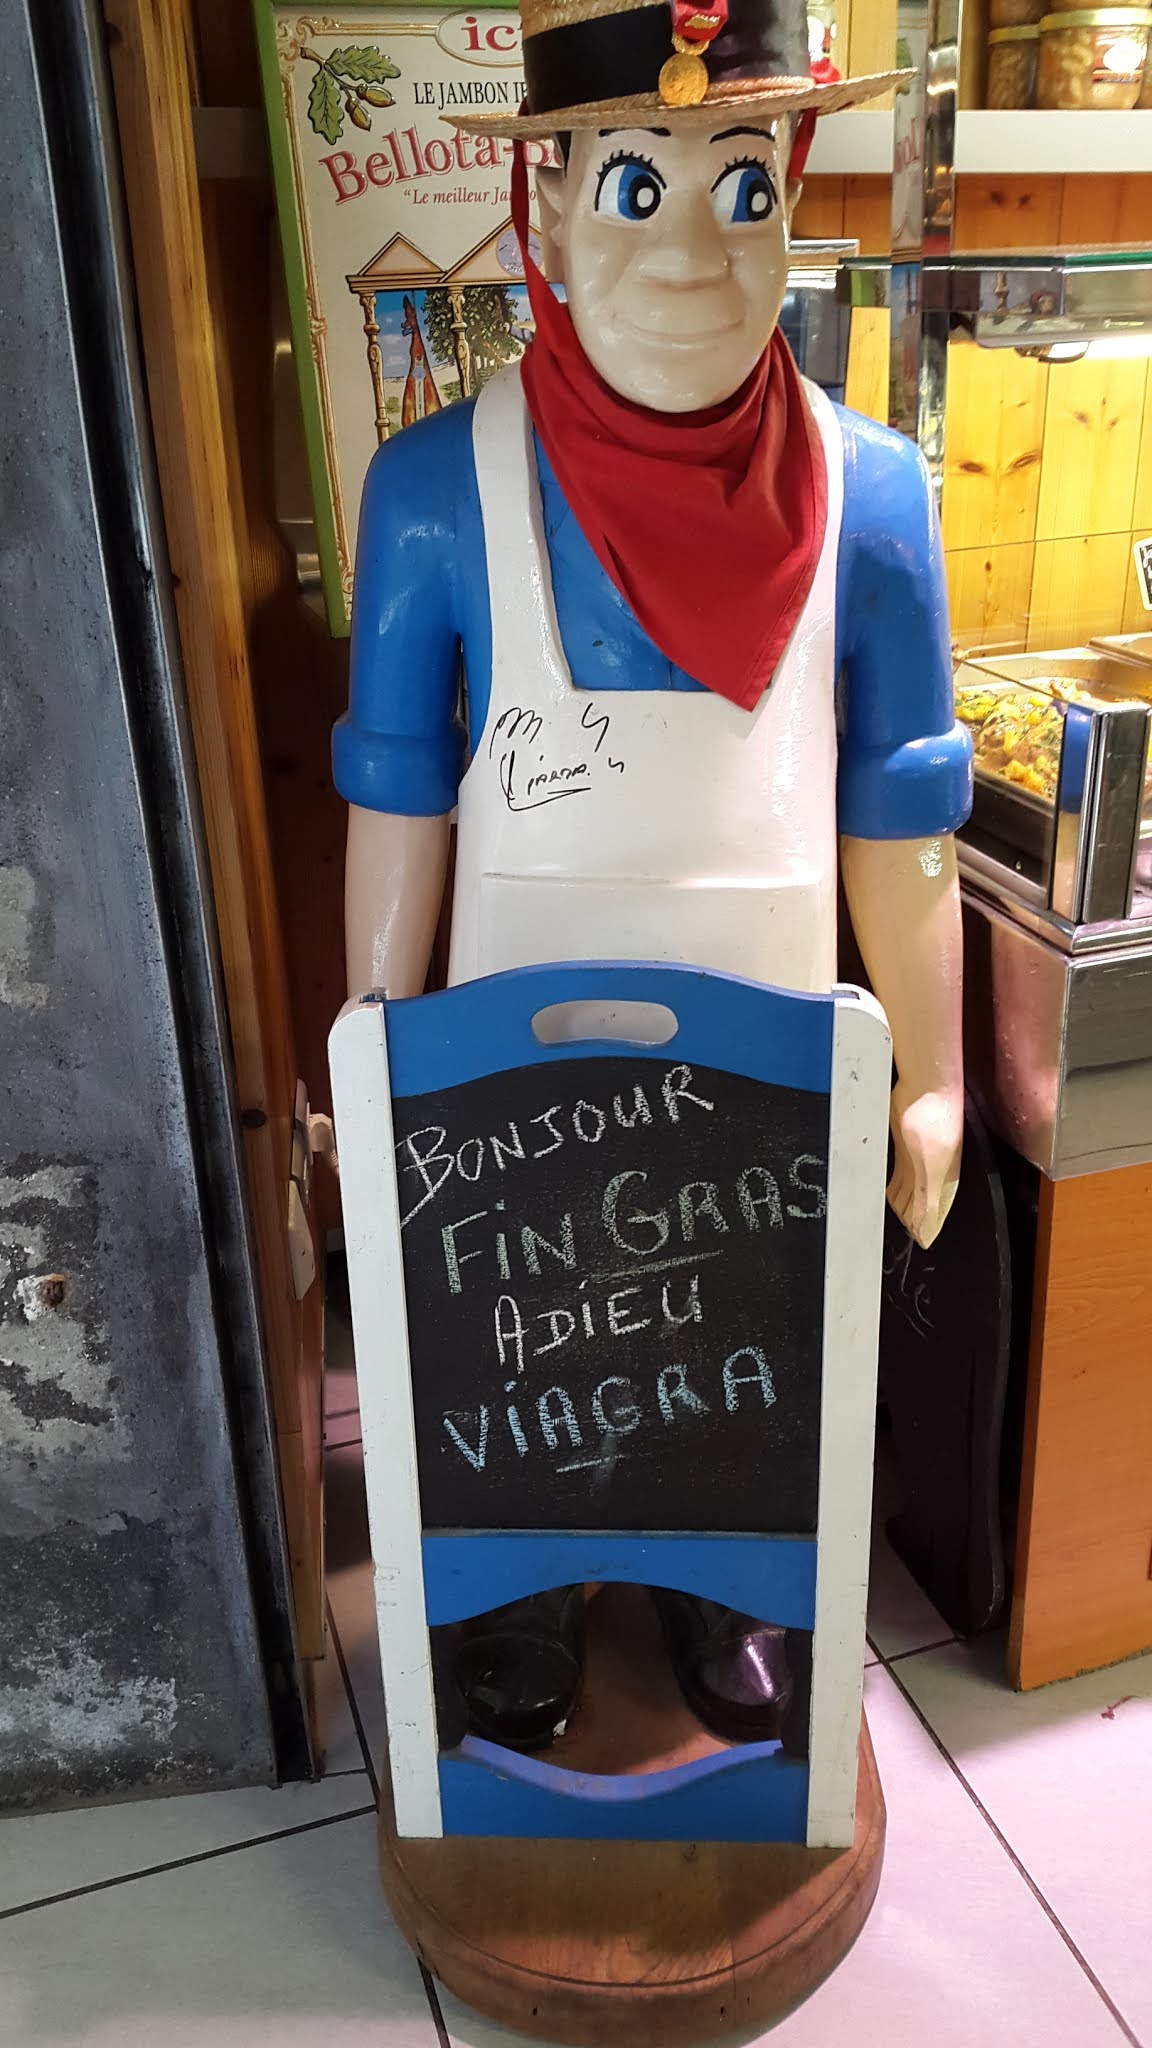 ici
LE JAMBON
Bellota-
"Le meilleur
BONJOUR
FiN GRAS
ADiEU
ViAGRA